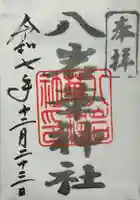 奉拝
八雲神社
令和七年十二月二十三日